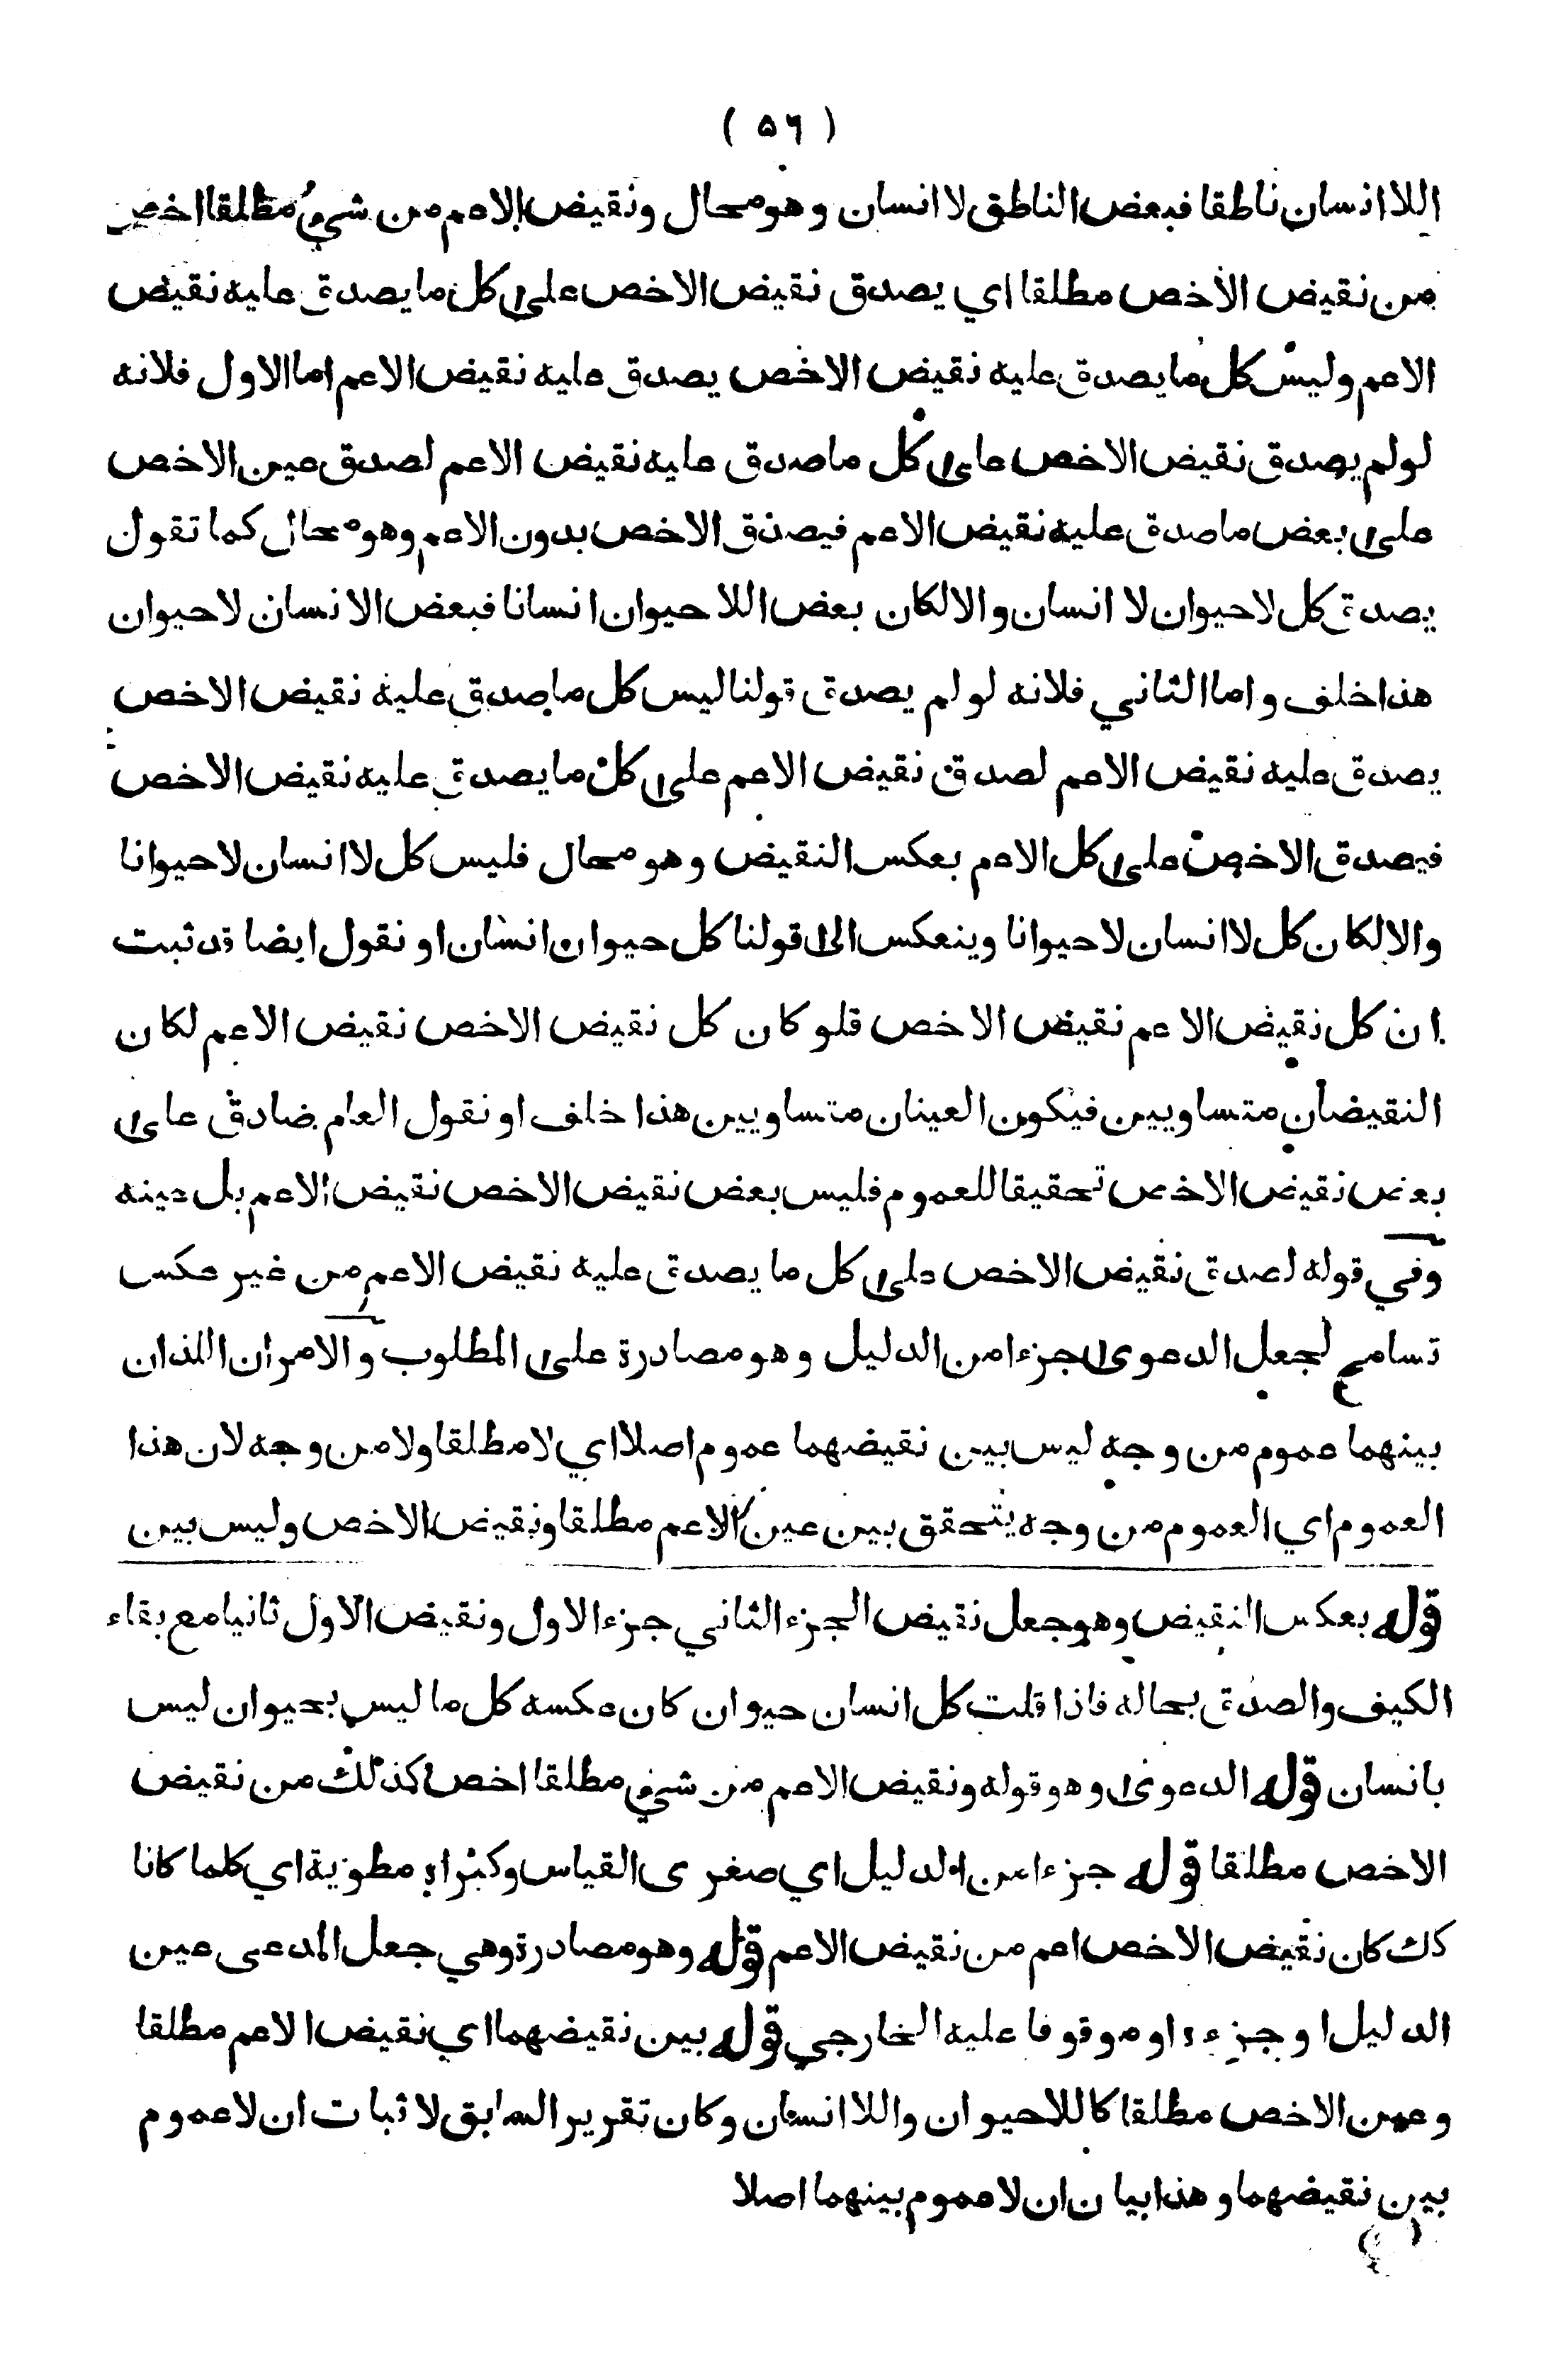 ( ٥٦ )
اللا انسان ناطقا فبعض الناطق لا انسان وهو محال ونقيض الاعم من شيء مطلقا اخص
من نقيض الاخص مطلقا اي يصدق نقيض الاخص على كل ما يصدق عليه نقيض
الاعم وليس كل ما يصدق عليه نقيض الاخص يصدق عليه نقيض الاعم اما الاول فلانه
لو لم يصدق نقيض الاخص على كل ما صدق عليه نقيض الاعم لصدق عين الاخص
على بعض ما صدق عليه نقيض الاعم فيصدق الاخص بدون الاعم وهو محال كما تقول
يصدق كل لا حيوان لا انسان والا لكان بعض اللا حيوان انسانا فبعض الانسان لا حيوان
هذا خلف واما الثاني فلانه لو لم يصدق قولنا ليس كل ما صدق عليه نقيض الاخص
يصدق عليه نقيض الاعم لصدق نقيض الاعم على كل ما يصدق عليه نقيض الاخص
فيصدق الاخص على كل الاعم بعكس النقيض وهو محال فليس كل لا انسان لا حيوانا
والا لكان كل لا انسان لا حيوانا وينعكس الى قولنا كل حيوان انسان او نقول ايضا قد ثبت
ان كل نقيض الاعم نقيض الاخص فلو كان كل نقيض الاخص نقيض الاعم لكان
النقيضان متساويين فيكون العينان متساويين هذا خلف او نقول العام صادق على
بعض نقيض الاخص تحقيقا للعموم فليس بعض نقيض الاخص نقيض الاعم بل عينه
وفي قوله لصدق نقيض الاخص على كل ما يصدق عليه نقيض الاعم من غير عكس
تسامح لجعل الدعوى جزءا من الدليل وهو مصادرة على المطلوب والامران اللذان
بينهما عموم من وجه ليس بين نقيضهما عموم اصلا اي لا مطلقا ولا من وجه لان هذا
العموم اي العموم من وجه يتحقق بين عين الاعم مطلقا ونقيض الاخص وليس بين
قوله بعكس النقيض وهو جعل نقيض الجزء الثاني جزء الاول ونقيض الاول ثانيا مع بقاء
الكيف والصدق بحاله فاذا قلت كل انسان حيوان كان عكسه كل ما ليس بحيوان ليس
بانسان قوله الدعوى وهو قوله ونقيض الاعم من شيء مطلقا اخص كذلك من نقيض
الاخص مطلقا قوله جزءا من الدليل اي صغرى القياس وكبراه مطوية اي كلما كانا
كك كان نقيض الاخص اعم من نقيض الاعم قوله وهو مصادرة وهي جعل المدعى عين
الدليل او جزءه او موقوفا عليه الخارجي قوله بين نقيضهما اي نقيض الاعم مطلقا
وعين الاخص مطلقا كاللاحيوان واللا انسان وكان تقرير السابق لاثبات ان لا عموم
بين نقيضهما وهذا بيان ان لا عموم بينهما اصلا